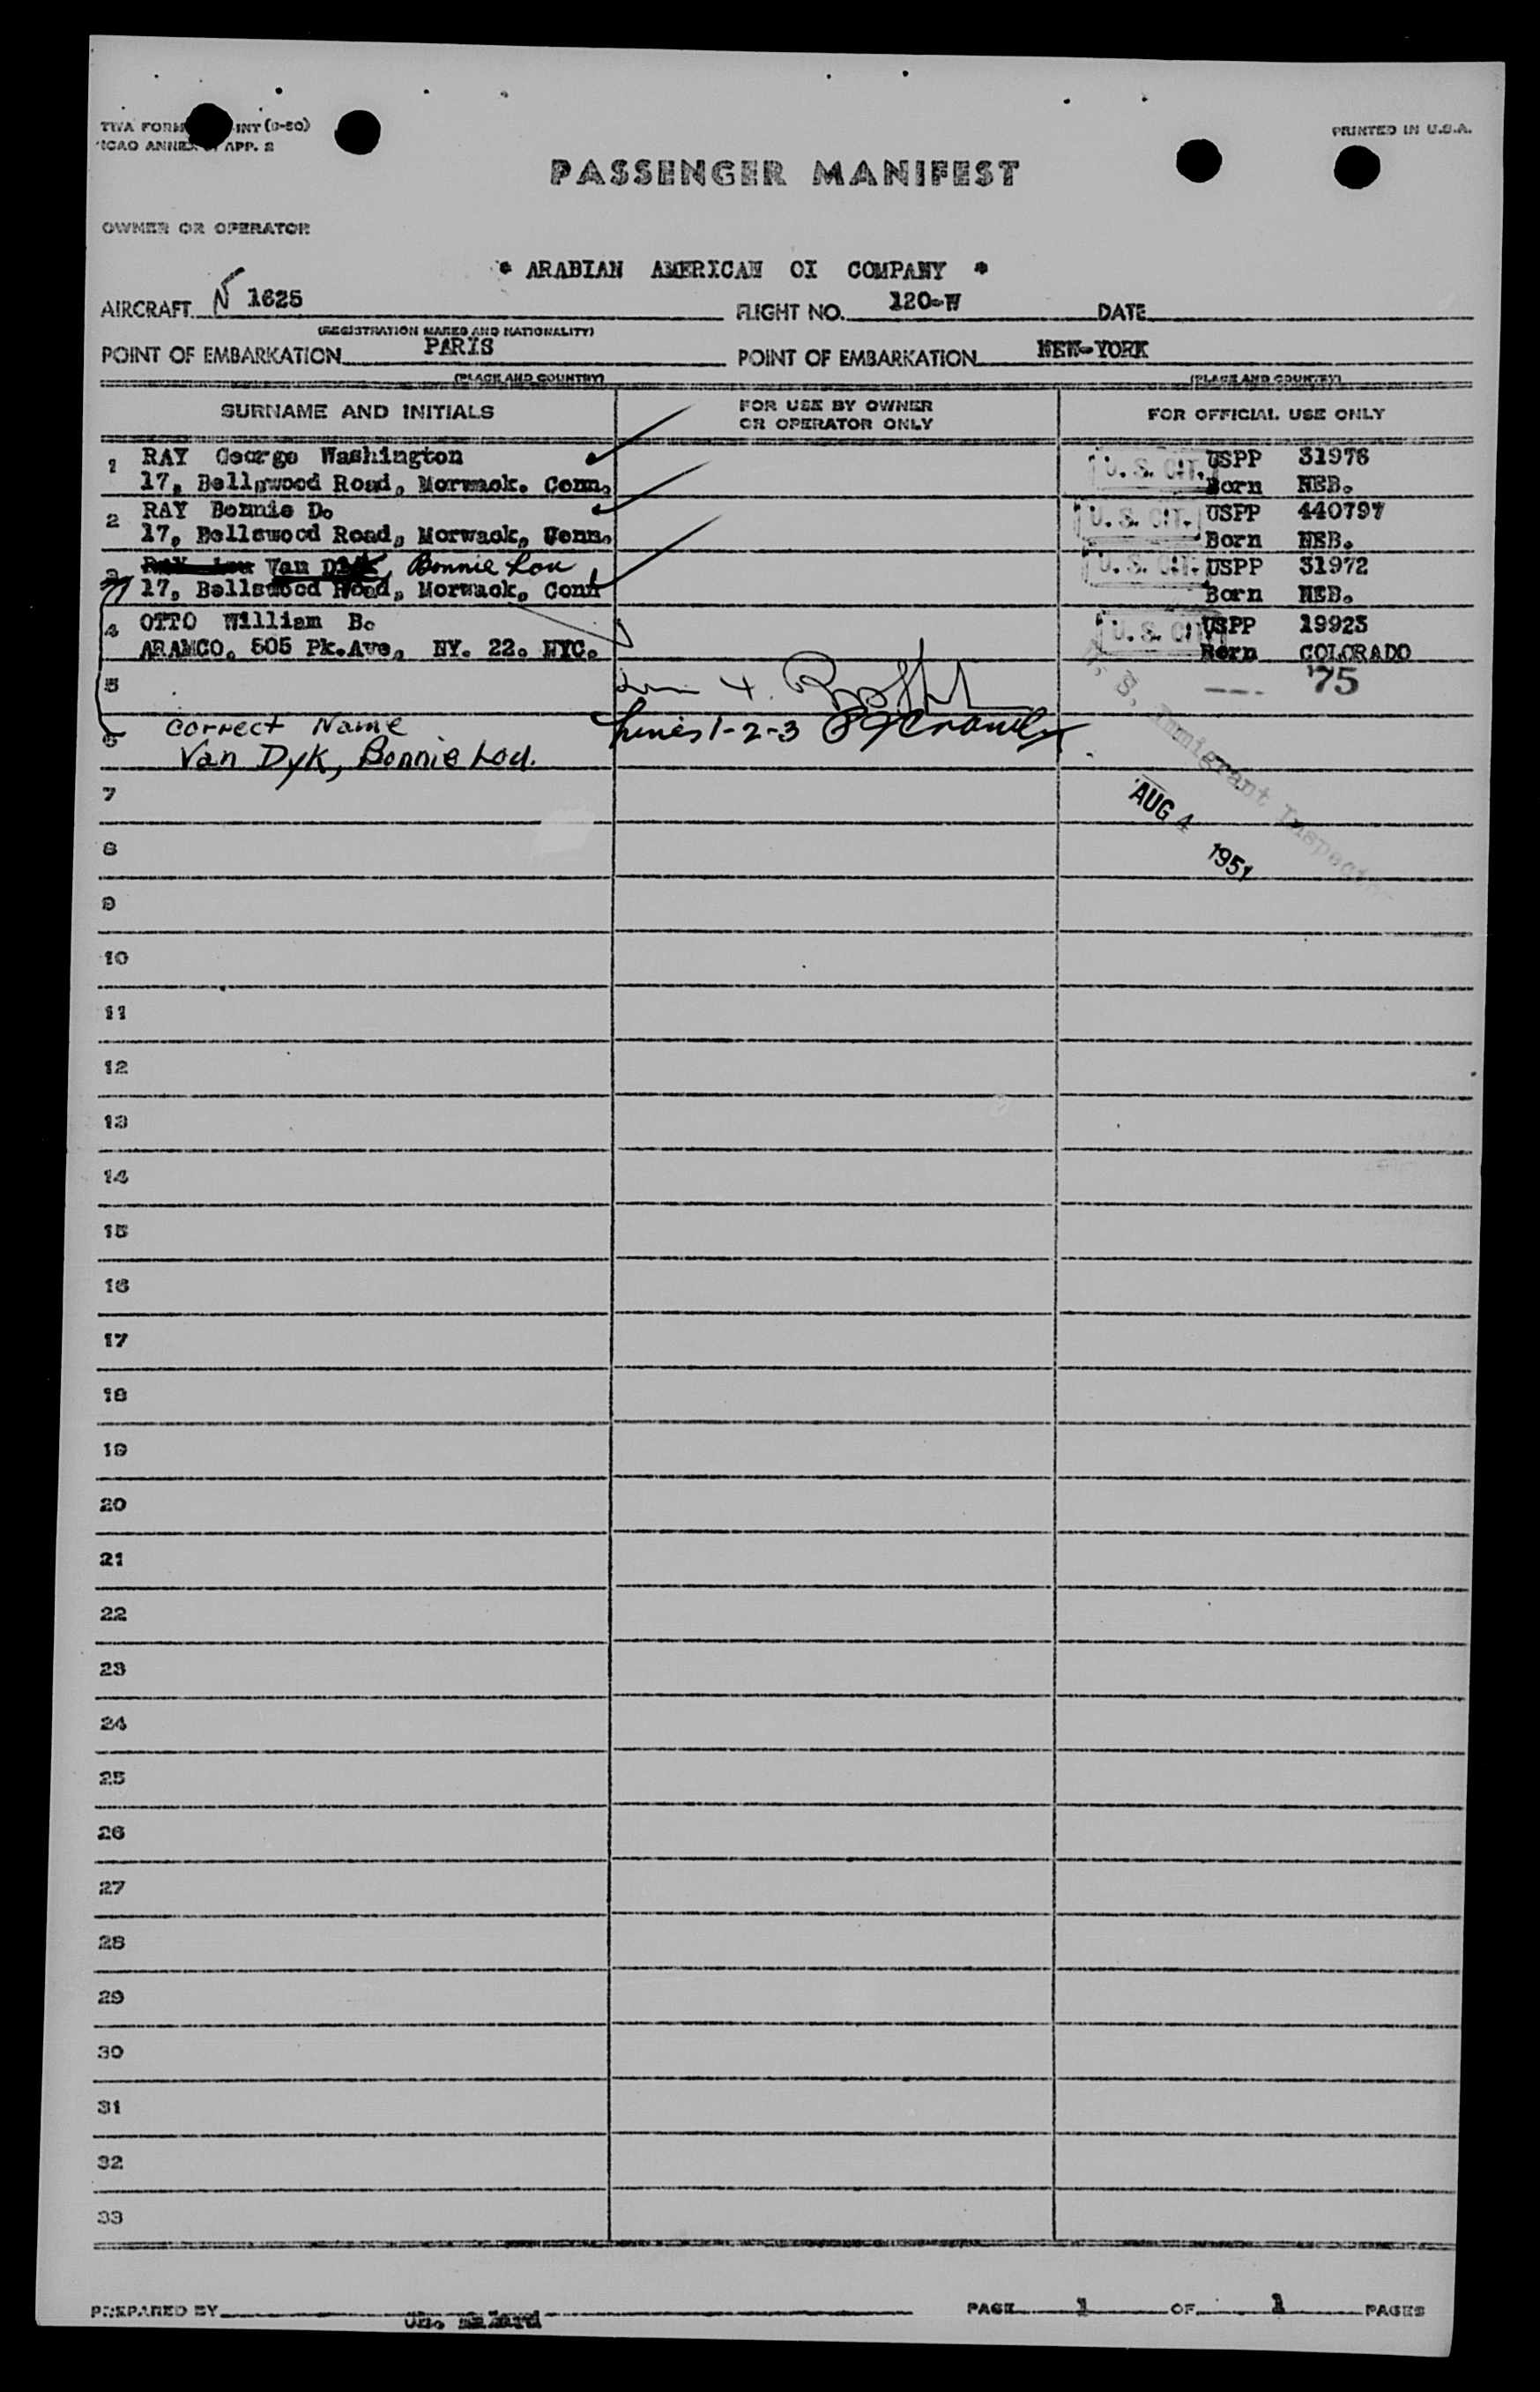 TWA FORM INT (9-50)
ICAO ANNEX 9, APP. 2
PRINTED IN U.S.A.
PASSENGER MANIFEST
OWNER OR OPERATOR
* ARABIAN AMERICAN OI COMPANY *
AIRCRAFT N 1625 FLIGHT NO. 120-W DATE
(REGISTRATION MARKS AND NATIONALITY)
POINT OF EMBARKATION PARIS POINT OF EMBARKATION NEW-YORK
(PLACE AND COUNTRY) (PLACE AND COUNTRY)
SURNAME AND INITIALS FOR USE BY OWNER OR OPERATOR ONLY FOR OFFICIAL USE ONLY
1 RAY George Washington U. S. CIT. USPP 31976
17, Bellswood Road, Morwack. Conn. Born NEB.
2 RAY Bonnie D. U. S. CIT. USPP 440797
17, Bellswood Road, Morwack, Conn. Born NEB.
3 RAY Lou Van Dyk, Bonnie Lou U. S. CIT. USPP 31972
17, Bellswood Road, Morwack, Conn Born NEB.
4 OTTO William B. U. S. CIT USPP 19923
ARAMCO. 505 Pk.Ave, NY. 22. NYC. Born COLORADO
5 Line 4. 75
6 Correct Name Lines 1-2-3
Van Dyk, Bonnie Lou.
U. S. Immigrant Inspector
AUG 4 1951
7
8
9
10
11
12
13
14
15
16
17
18
19
20
21
22
23
24
25
26
27
28
29
30
31
32
33
PREPARED BY PAGE 1 OF 1 PAGES